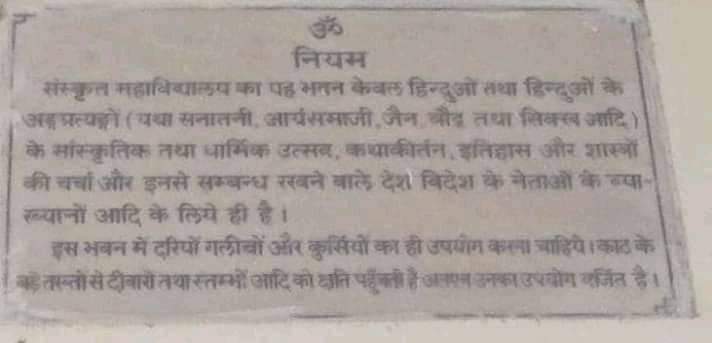 ॐ
नियम
संस्कृत महाविद्यालय का यह भवन केवल हिन्दुओं तथा हिन्दुओं के
अङ्गप्रत्यङ्गों (यथा सनातनी, आर्यसमाजी, जैन, बौद्ध तथा सिक्ख आदि)
के सांस्कृतिक तथा धार्मिक उत्सव, कथाकीर्तन, इतिहास और शास्त्रों
की चर्चा और इनसे सम्बन्ध रखने वाले देश विदेश के नेताओं के व्या-
ख्यानों आदि के लिये ही है।
इस भवन में दरियों गलीचों और कुर्सियों का ही उपयोग करना चाहिये। काठ के
बड़े तख्तों से दीवारों तथा स्तम्भों आदि को क्षति पहुँचती है अतएव उनका उपयोग वर्जित है।